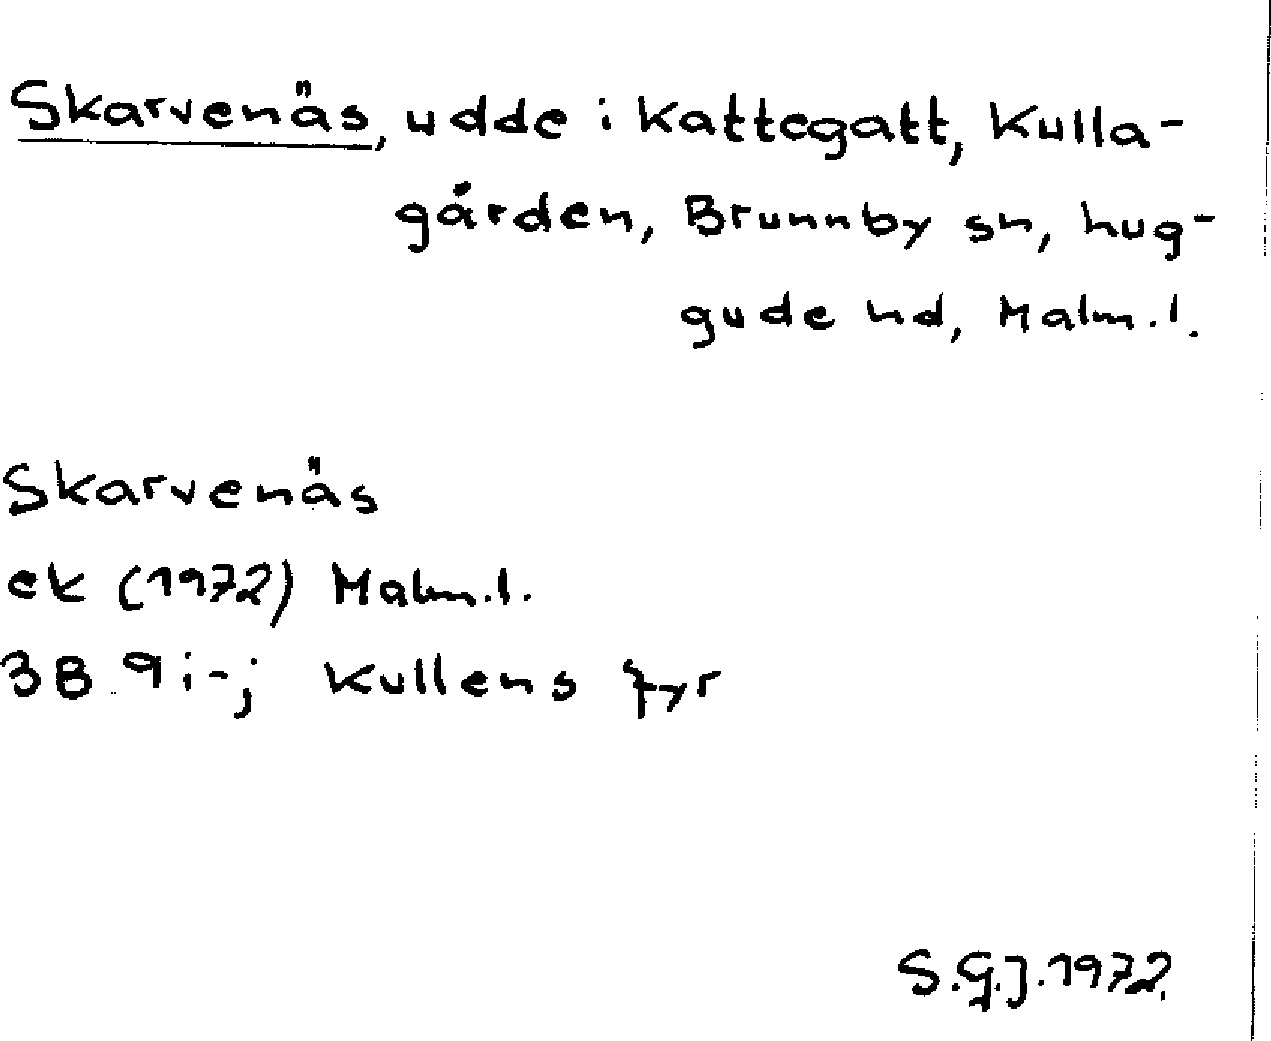 Skarvenäs, udde i Kattegatt, Kulla-
gården, Brunnby sn, Lug-
gude hd, Malm.l.
Skarvenäs
ek (1972) Malm.l.
3B 9i-j Kullens fyr
S.G.J.1972.